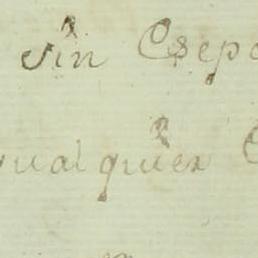 sin Csepc
qualquier